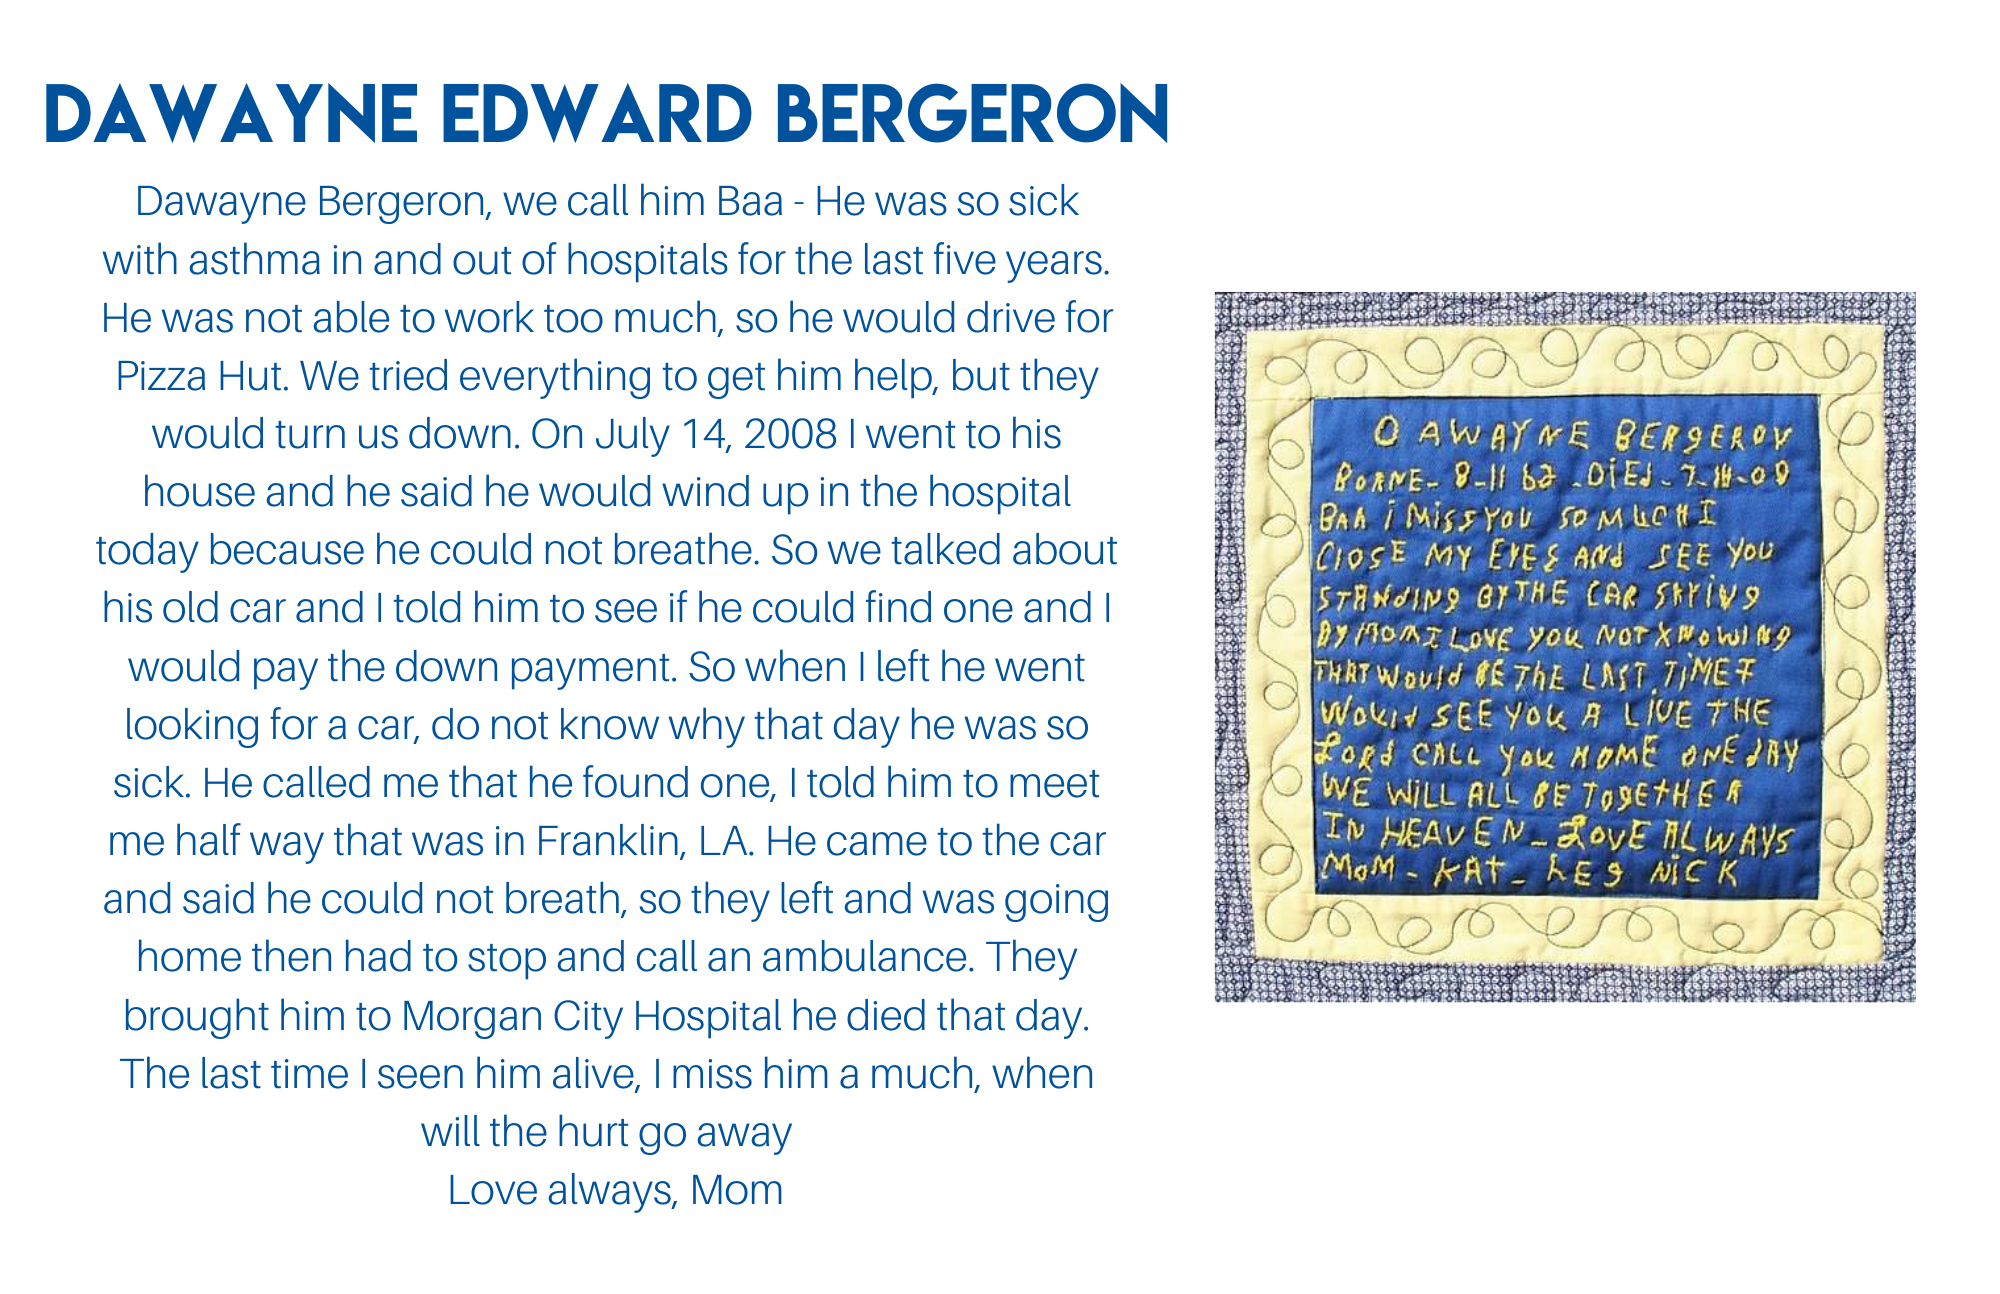 DAWAYNE EDWARD BERGERON
Dawayne Bergeron, we call him Baa - He was so sick
with asthma in and out of hospitals for the last five years.
He was not able to work too much, so he would drive for
Pizza Hut. We tried everything to get him help, but they
would turn us down. On July 14, 2008 I went to his
house and he said he would wind up in the hospital
today because he could not breathe. So we talked about
his old car and I told him to see if he could find one and I
would pay the down payment. So when I left he went
looking for a car, do not know why that day he was so
sick. He called me that he found one, I told him to meet
me half way that was in Franklin, LA. He came to the car
and said he could not breath, so they left and was going
home then had to stop and call an ambulance. They
brought him to Morgan City Hospital he died that day.
The last time I seen him alive, I miss him a much, when
will the hurt go away
Love always, Mom
DAWAYNE BERgERON
BORNE- 8-11 62 - DiEd - 7-14-08
BAA i MiSS YOU SO MUCH I
ClOSE MY EYES ANd SEE YOU
STANdINg BY THE CAR SAYiNg
BY MOM I LOVE YOU NOT KNOWINg
THAT WOUld BE THE LAST TiME I
WOUld SEE YOU A LIVE THE
LORd CALL YOU HOME ONE dAY
WE WiLL ALL BE TOgETHER
IN HEAVEN - LOVE ALWAYS
MOM - KAT - NiCK